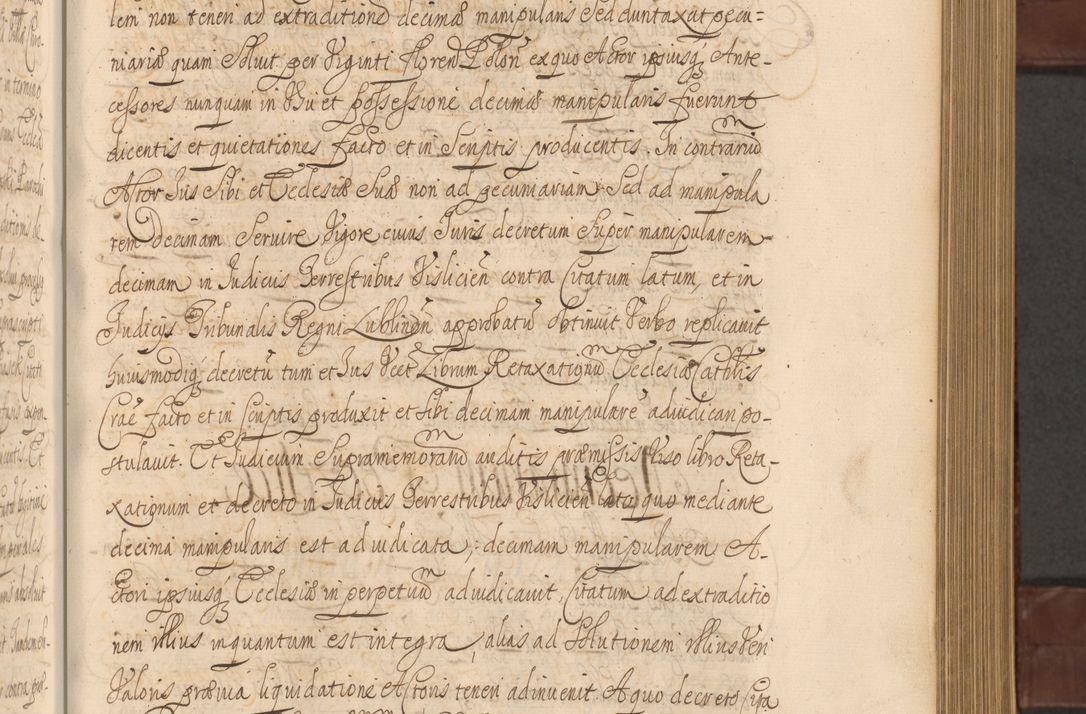 lem non teneri ad extraditionē decimæ manipularis sed duntaxat pecu=
niariæ quam Soluit per Viginti floren Polon ex quo Actor ipsiusq́ Ante-
cessores nunquam in Usu et possessione decimæ manipularis fuerunt
dicentis et quietationes facto et in Scriptis producentis. In contrariū
Actor Jus Sibi et Ecclesiæ Suæ non ad pecuniariam Sed ad manipula
rem Decimam Servire Vigore cuius Juris decretum Super manipularem
decimam in Judiciis Terrestribus Vislicien contra Citatum latum, et in
Judicijs Tribunalis Regni Lublinen approbatū obtinuit Verbo replicauit
huiusmodiq́ decretū tum et Jus Vcet Librum Retaxationū Ecclesiæ Cathlis
Crac facto et in Scriptis produxit et Sibi decimam manipularē adiudicari po-
stulauit. Et Judicium Supramemoratū auditis præmissis Viso libro Reta-
xationum et decreto in Judiciis Terrestribus Vislicien lato, quo mediante
decima manipularis est adiudicata, decimam manipularem A-
ctori ipsiusq́ Ecclesiæ in perpetuū adiudicauit, Citatum ad extraditio
nem illius inquantum est integra, alias ad Solutionem illius Veri
Valoris præuia liquidatione Actoris teneri adinuenit. A quo decreto Cita